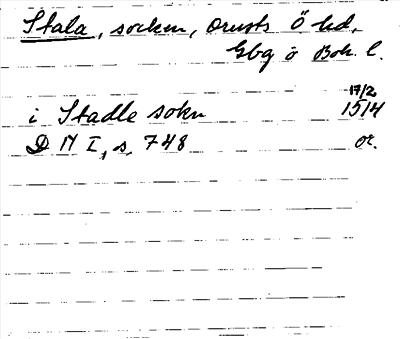 Stala, socken, Orusts Ö hd,
Gbg o Boh. l.
17/2
i Stadle sokn 1514
D N I, s. 748 or.